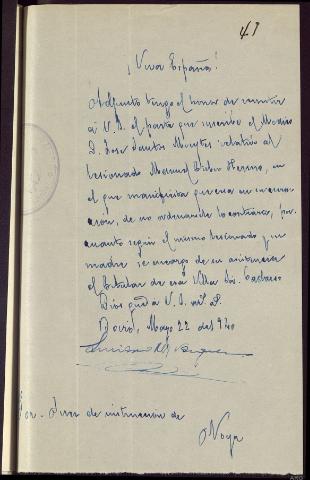 47
¡Viva España!
Adjunto tengo el honor de remitir
á V.S. el parte que suscribe el Medico
D. Jose Santos Montes relativo al
lesionado Manuel
el que manifiesta que cesa en su
de no ordenando lo contrario, por
cuanto según el mismo lesionado y su
madre se encargo de su asistencia
el titular de esa Villa Sr.
Dios gude á V.S. ms. as.
Mayo 22 del 940
Sor. Juez de instrucción de
Noya